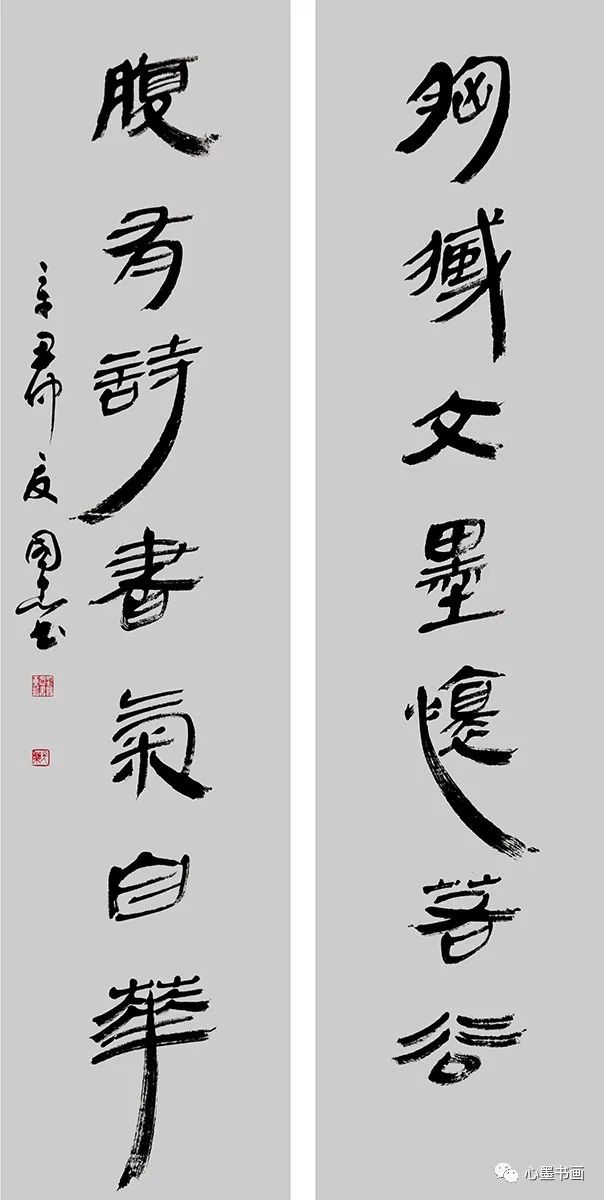 胸藏文墨懷若谷
腹有詩書氣自華
辛丑仲夏国志书
心墨书画